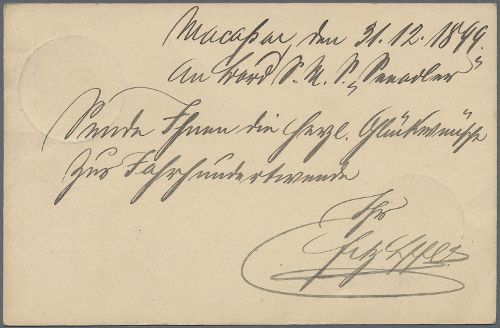 Macassar, den 31.12.1899.
An Bord S.M.S. „Seeadler“
Sende Ihnen die herzl. Glückwünsche
zur Jahrhundertwende
Ihr
Fritz